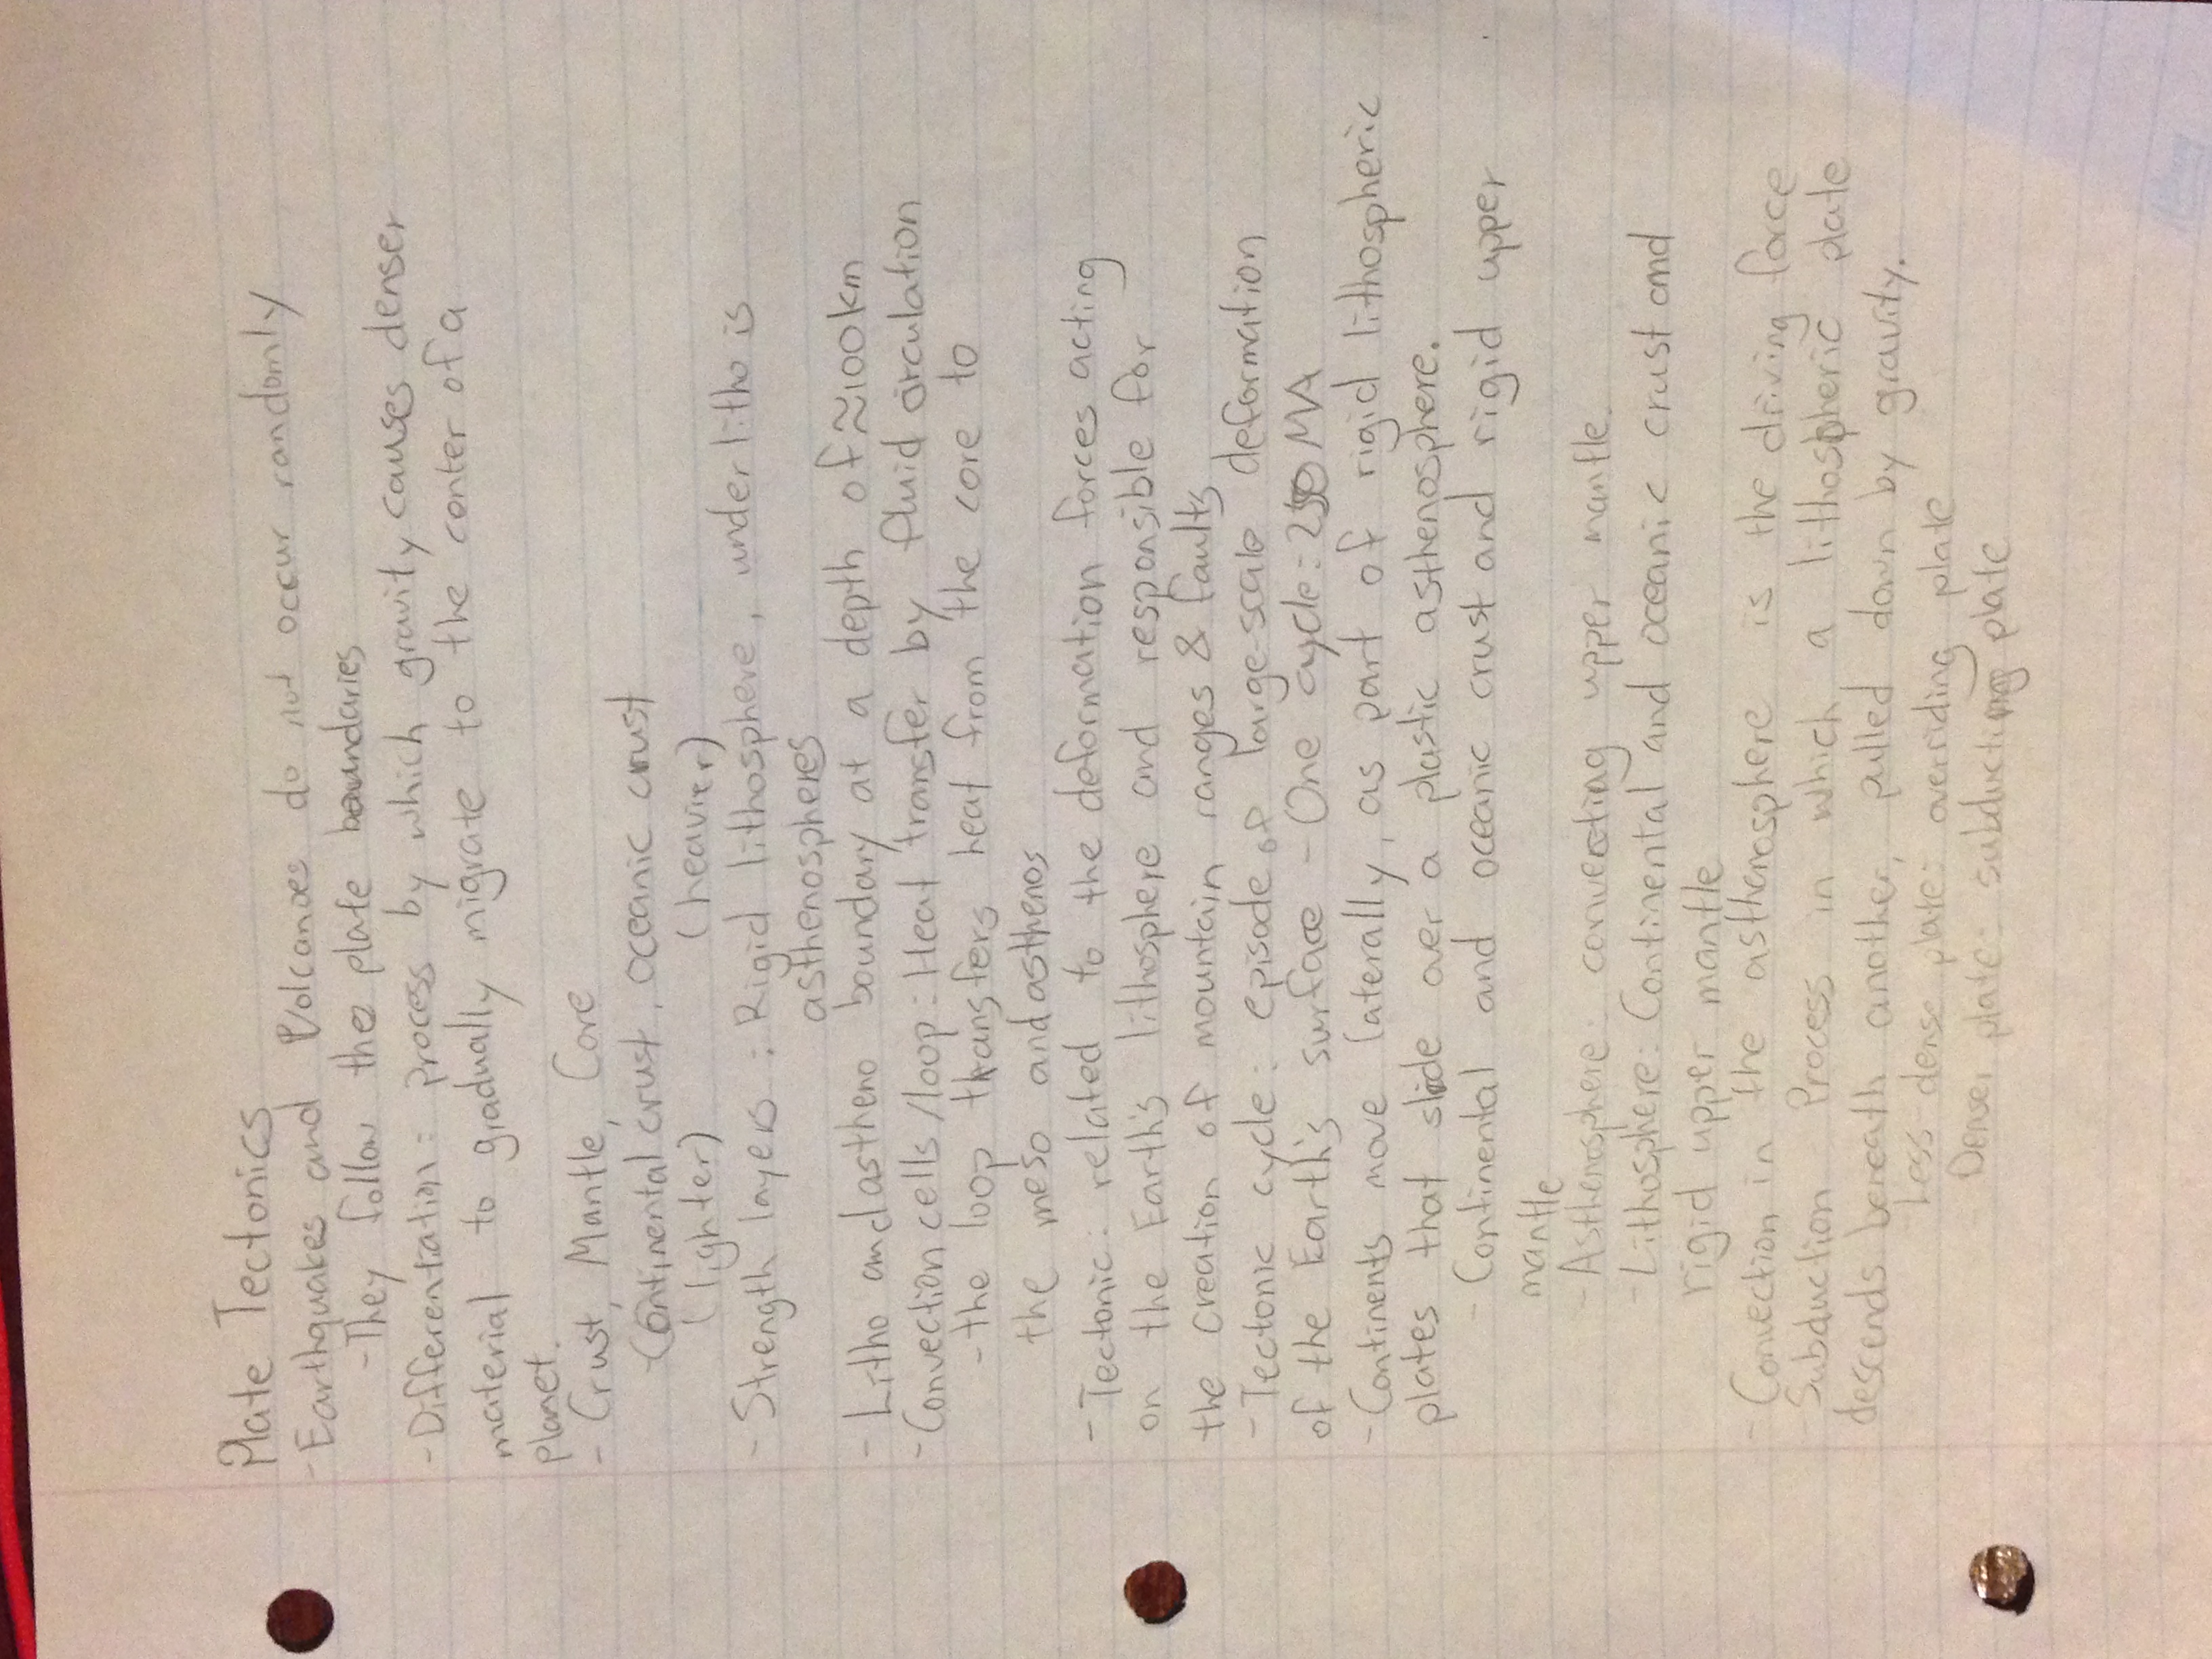 Plate Tectonics
- Earthquakes and Volcanoes do not occur randomly
- They follow the plate boundaries
- Differentiation: process by which gravity causes denser
material to gradually migrate to the center of a
planet.
- Crust, Mantle, Core
- Continental crust, oceanic crust
(lighter) (heavier)
- Strength layers: Rigid lithosphere, under litho is
asthenospheres
- Litho and astheno boundary at a depth of ≈100km
- Convection cells/loop: Heat transfer by fluid circulation
- the loop transfers heat from the core to
the meso and asthenos
- Tectonic: related to the deformation forces acting
on the Earth's lithosphere and responsible for
the creation of mountain ranges & faults
- Tectonic cycle: episode of large-scale deformation
of the Earth's surface - One cycle: 250 MA
- Continents move laterally, as part of rigid lithospheric
plates that slide over a plastic asthenosphere.
- Continental and oceanic crust and rigid upper
mantle
- Asthenosphere: convecting upper mantle.
- Lithosphere: Continental and oceanic crust and
rigid upper mantle
- Convection in the asthenosphere is the driving force
- Subduction Process in which a lithospheric plate
descends beneath another, pulled down by gravity.
- Less dense plate: overriding plate
- Denser plate: subducting plate